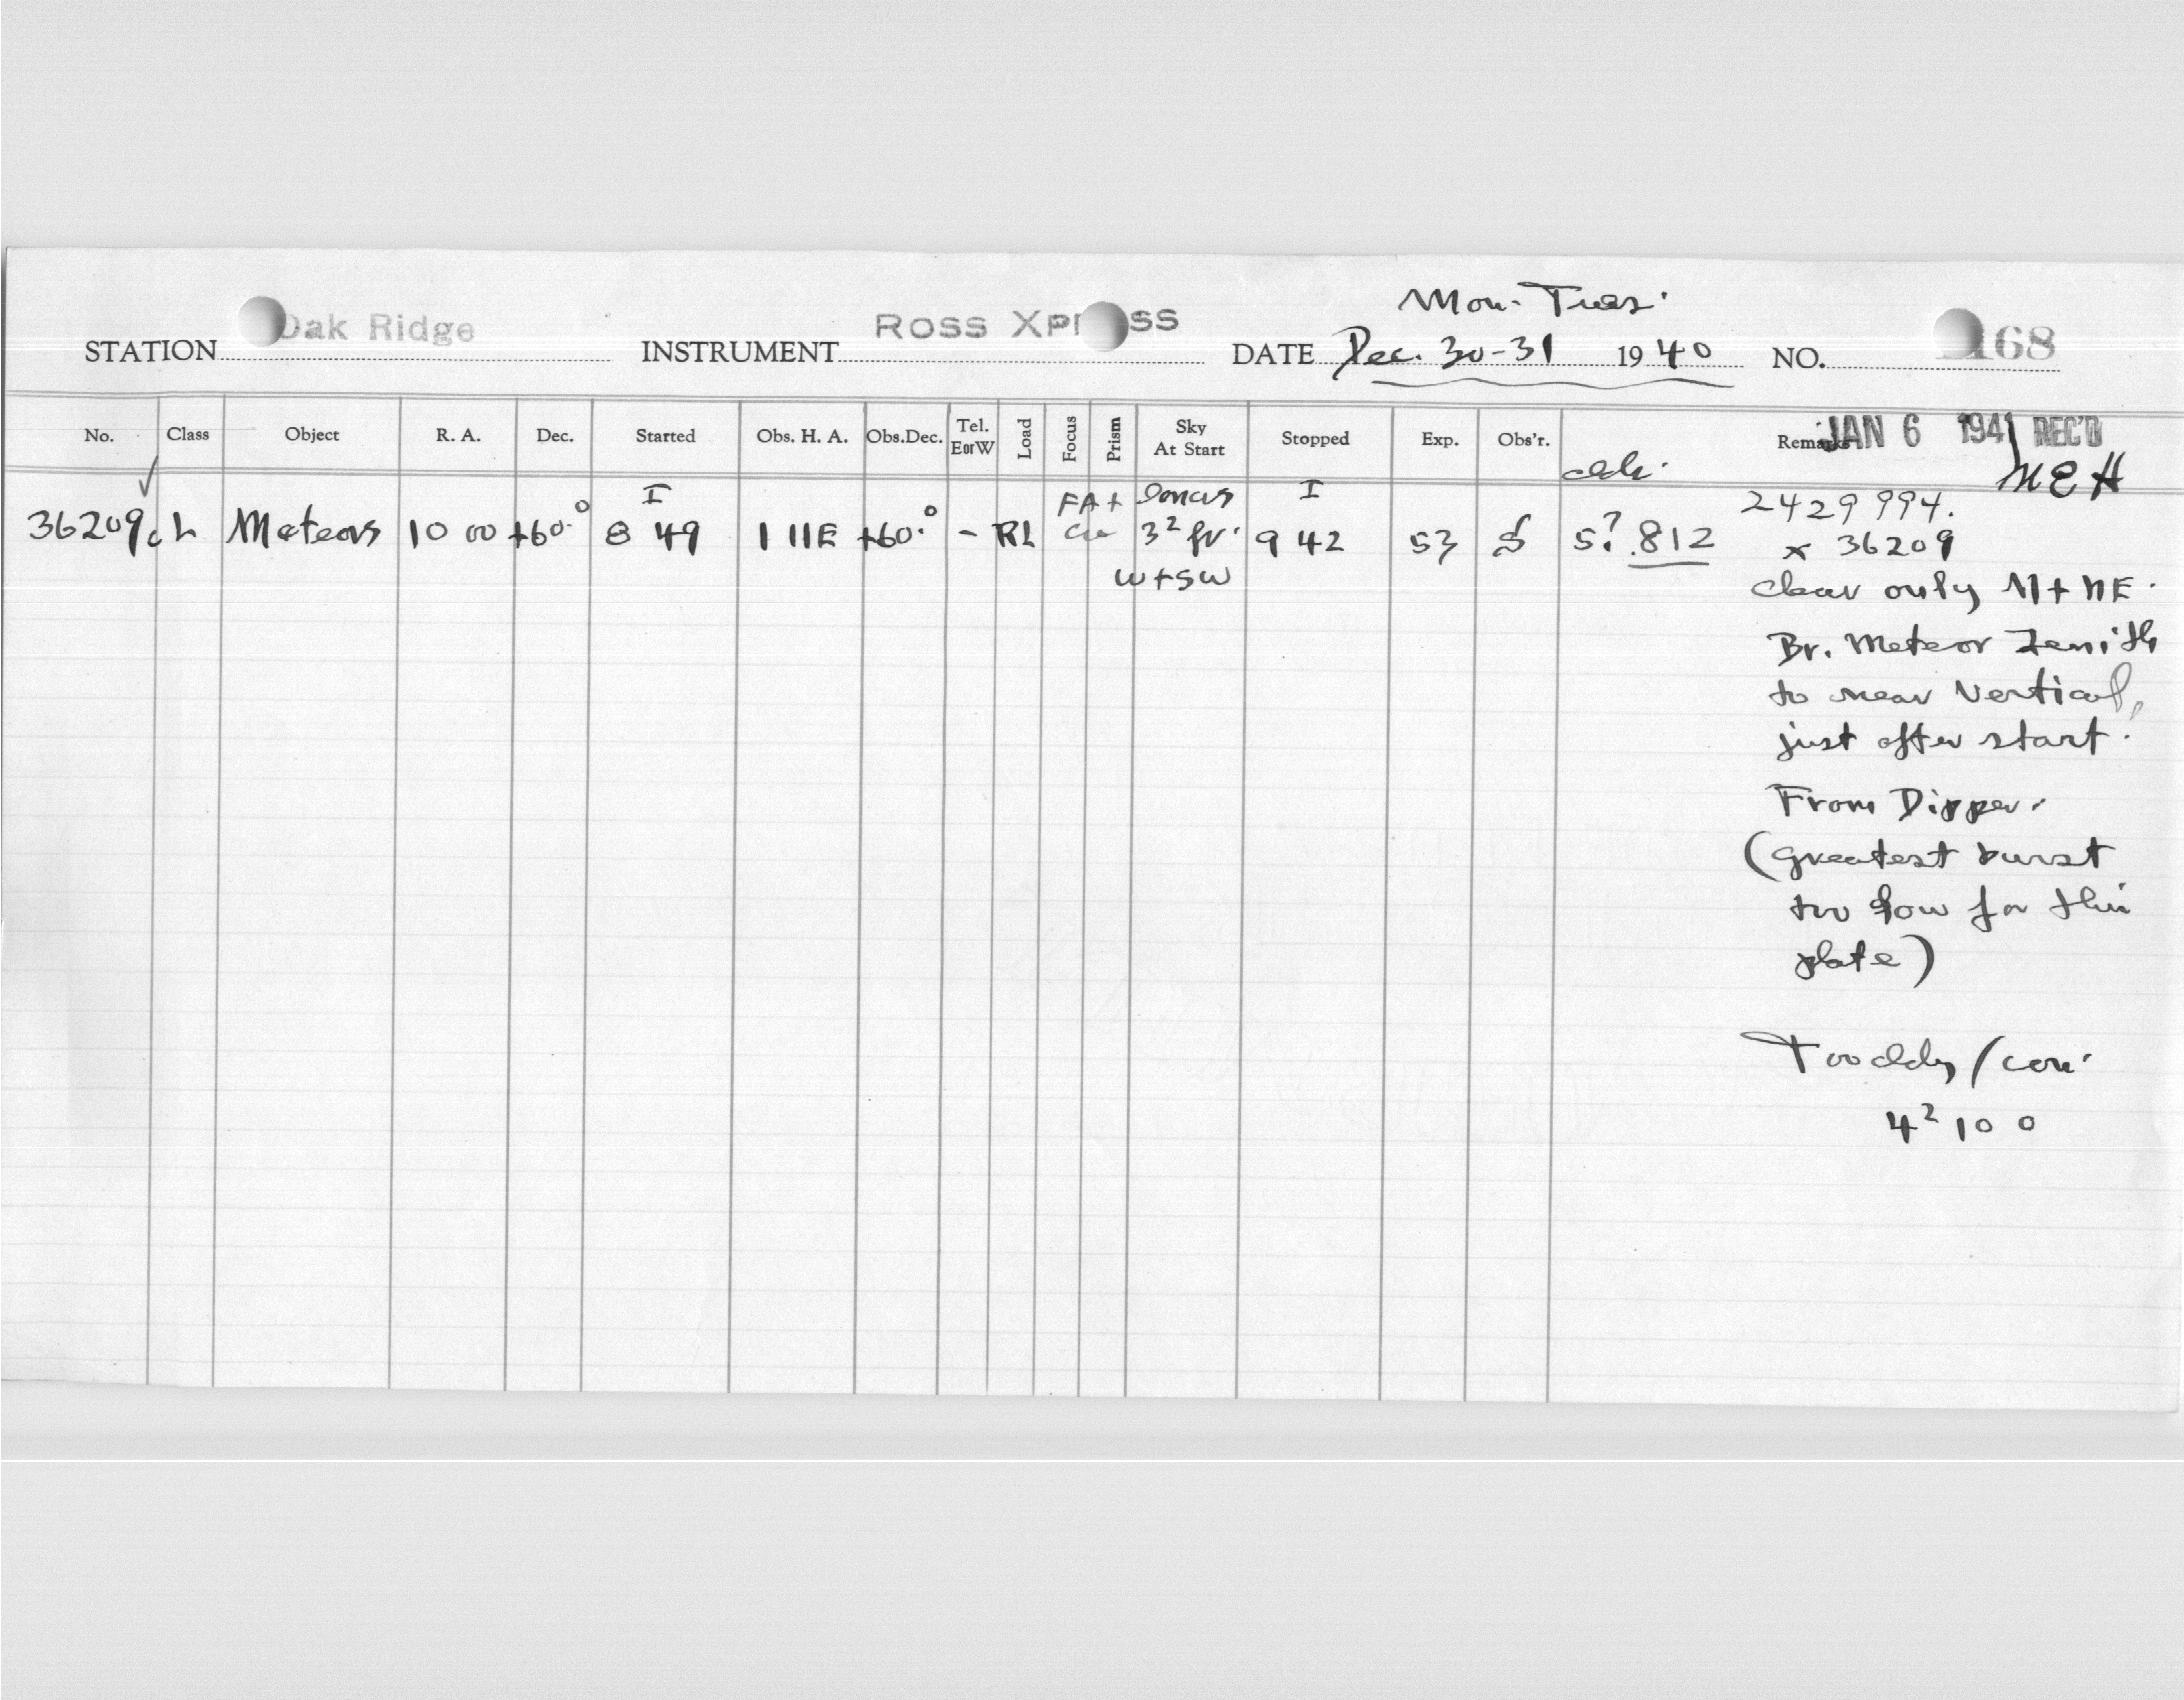 Mon. Tues.
STATION Oak Ridge INSTRUMENT ROSS XPRESS DATE Dec. 30-31 1940 NO. 168
No. Class Object R. A. Dec. Started Obs. H. A. Obs.Dec. Tel. E or W Load Focus Prism Sky At Start Stopped Exp. Obs'r. Remarks
JAN 6 1941 REC'D
MEH
36209 Meteors 10 00 +60.° I 8 49 1 11E +60.° - RL FA+ 3² I 9 42 53 5? .812
W+SW
2429994.
x 36209
Clear only N + NE.
Br. Meteor Zenith
to near Vertical,
just after start.
From Dipper.
(greatest burst
too low for this
plate)
4² 10 0